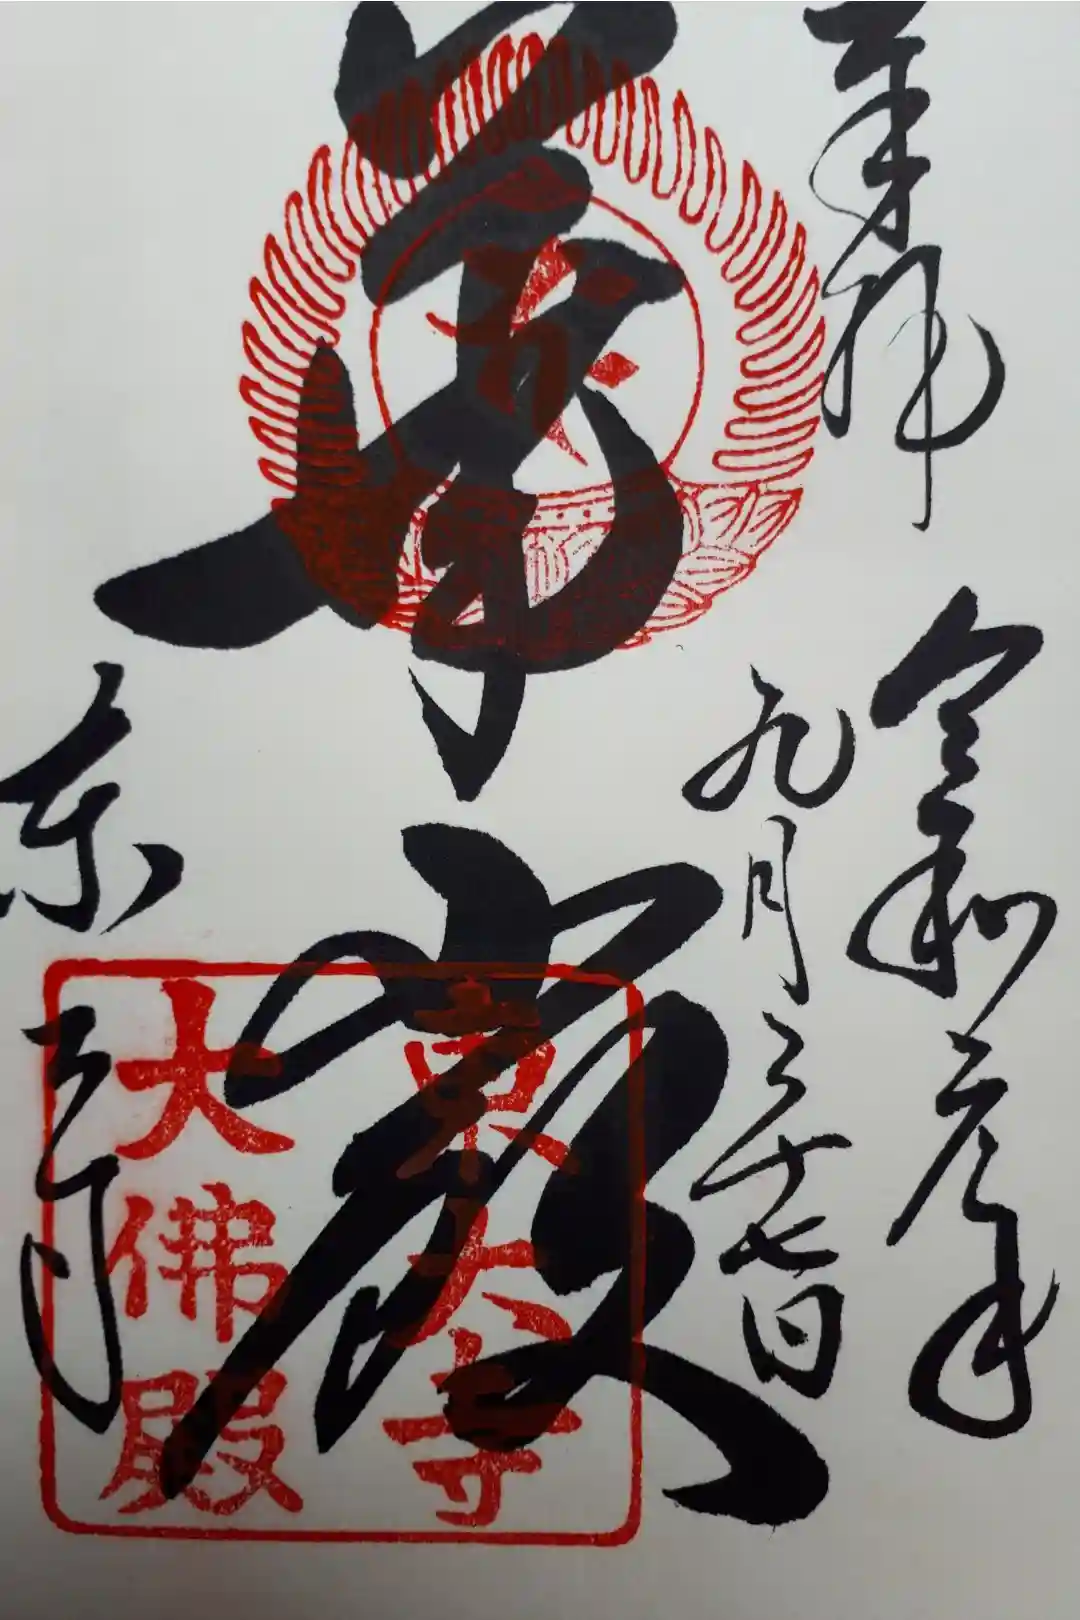 奉拝
令和元年
九月二十七日
華厳
東大寺
東大寺
大佛殿